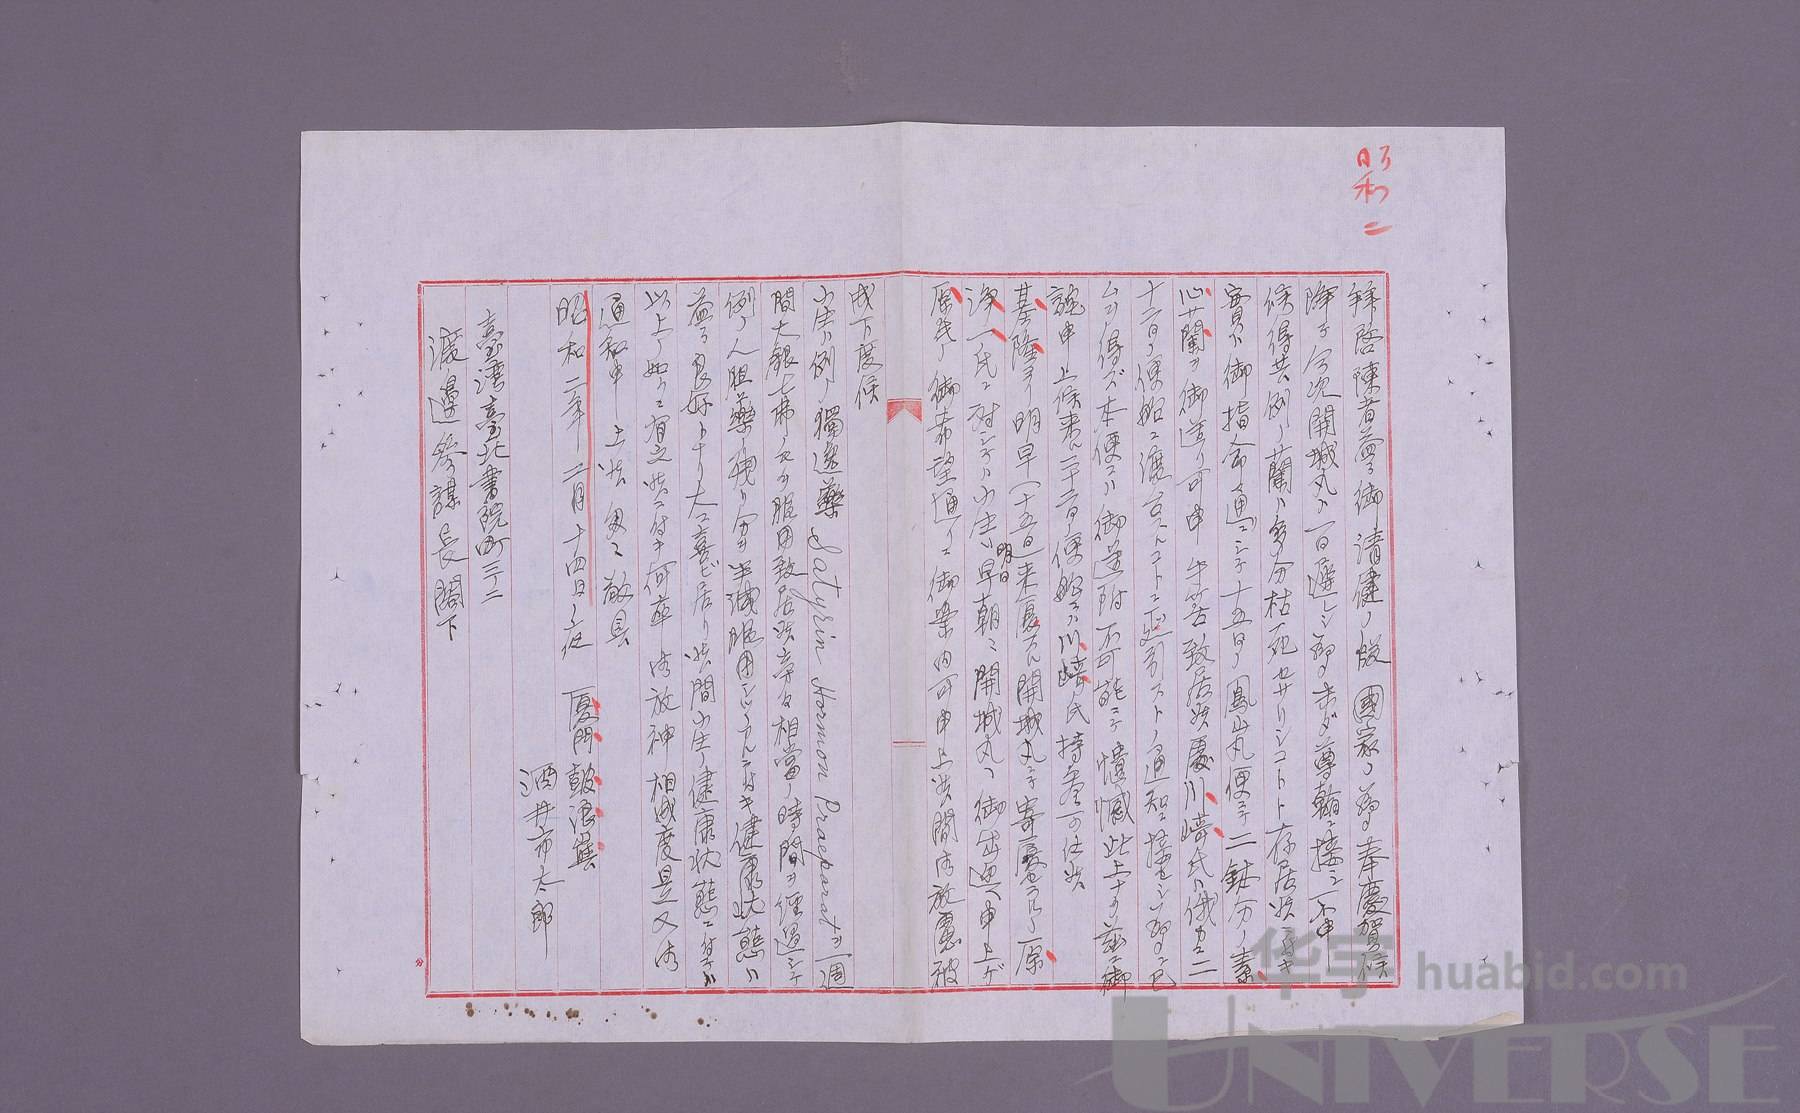 昭和二
拝啓陳者益々御清健ノ段國家ノ為メ奉慶賀候
降テ今次開城丸ハ一日遅レシ為メ未ダ尊翰ニ接シ不申
候得共例ノ蘭ハ多分枯死セサリシコトト存居候
實ハ御指命通ジシテ十五日ノ鳳山丸便ニテ二鉢分ノ素
心蘭ヲ御送リ可申手筈致居候處川崎氏ハ俄カニ二
十二日ノ便船ニ渡台スルコトニ延引ストノ通知ニ接セシ為メ已
ムヲ得ズ本便ニハ御送附不可能ニテ遺憾此上ナク茲ニ御
詫申上候来ル二十二日ノ便船ニハ川崎氏持参可仕候
基隆ヨリ明早(十五日)来厦スル開城丸ニテ寄厦セラル原
淨一氏ニ対シテハ小生ハ明日早朝ニ開城丸ヘ御出迎ヘ申上ゲ
原氏ノ御希望通リニ御案内可申上候間御放慮被
成下度候
小生ハ例ノ獨逸藥 Satyrin Hormon Praeparat ヲ一週
間大銀七弗ノ分服用致居候
相當ノ時間ヲ経過シテ
例ノ人胆藥ノ残リ分ヲ半減服用シツツアル
健康状態ハ
益々良好トナリ大ニ喜ビ居リ候間小生ノ健康状態ニ付テハ
以上ノ如クニ有之候ニ付キ何卒御放神相成度是又御
通知申上候匆々敬具
昭和二年二月十四日夜 厦門鼓浪嶼
酒井市太郎
臺湾臺北書院町三ノ二
渡邊参謀長閣下
华宇 huabid.com
UNIVERSE